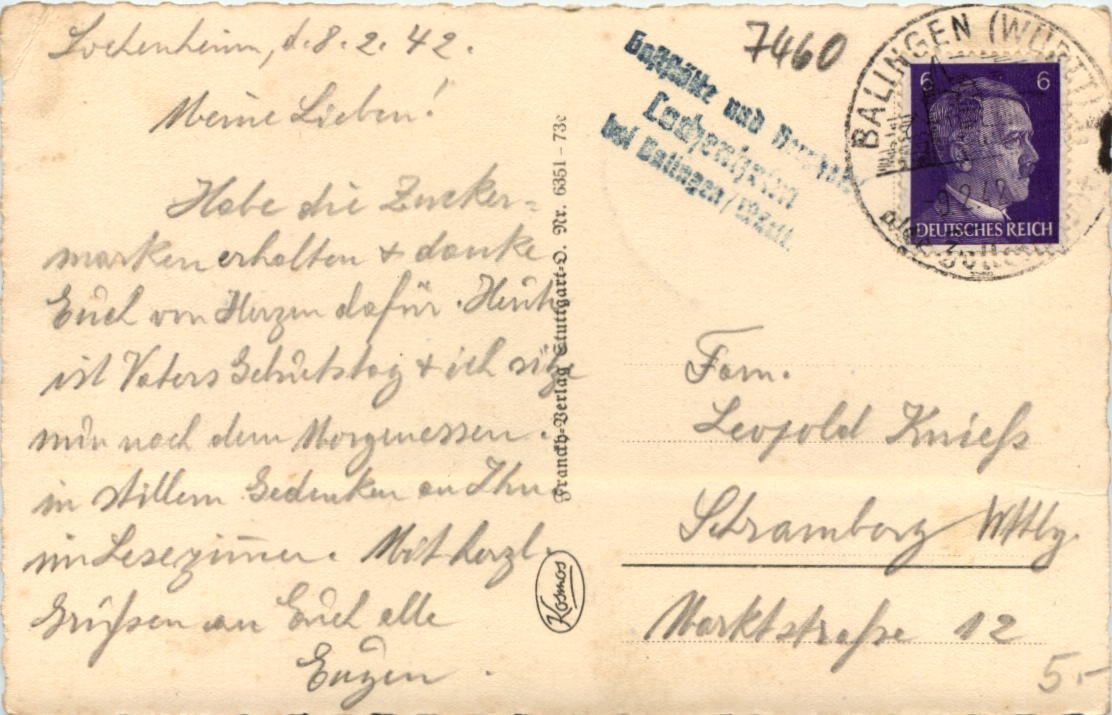 Lochenheim, d. 8. 2. 42.
Meine Lieben!
Habe die Zucker-
marken erhalten + danke
Euch von Herzen dafür. Heute
ist Vaters Geburtstag + ich sitze
nun nach dem Morgenessen
in stillem Gedenken an Ihn
im Lesezimmer. Mit herzl.
Grüßen an Euch alle
Eugen.
Franckh-Verlag Stuttgart-O. Nr. 6351-73c
Kosmos
7460
und
Lochenheim
bei Balingen/Württ.
BALINGEN (WÜRTT)
-9.2.42
6 6
DEUTSCHES REICH
Fam.
Leopold Knieß
Schramberg Wttbg.
Marktstraße 12
5.-